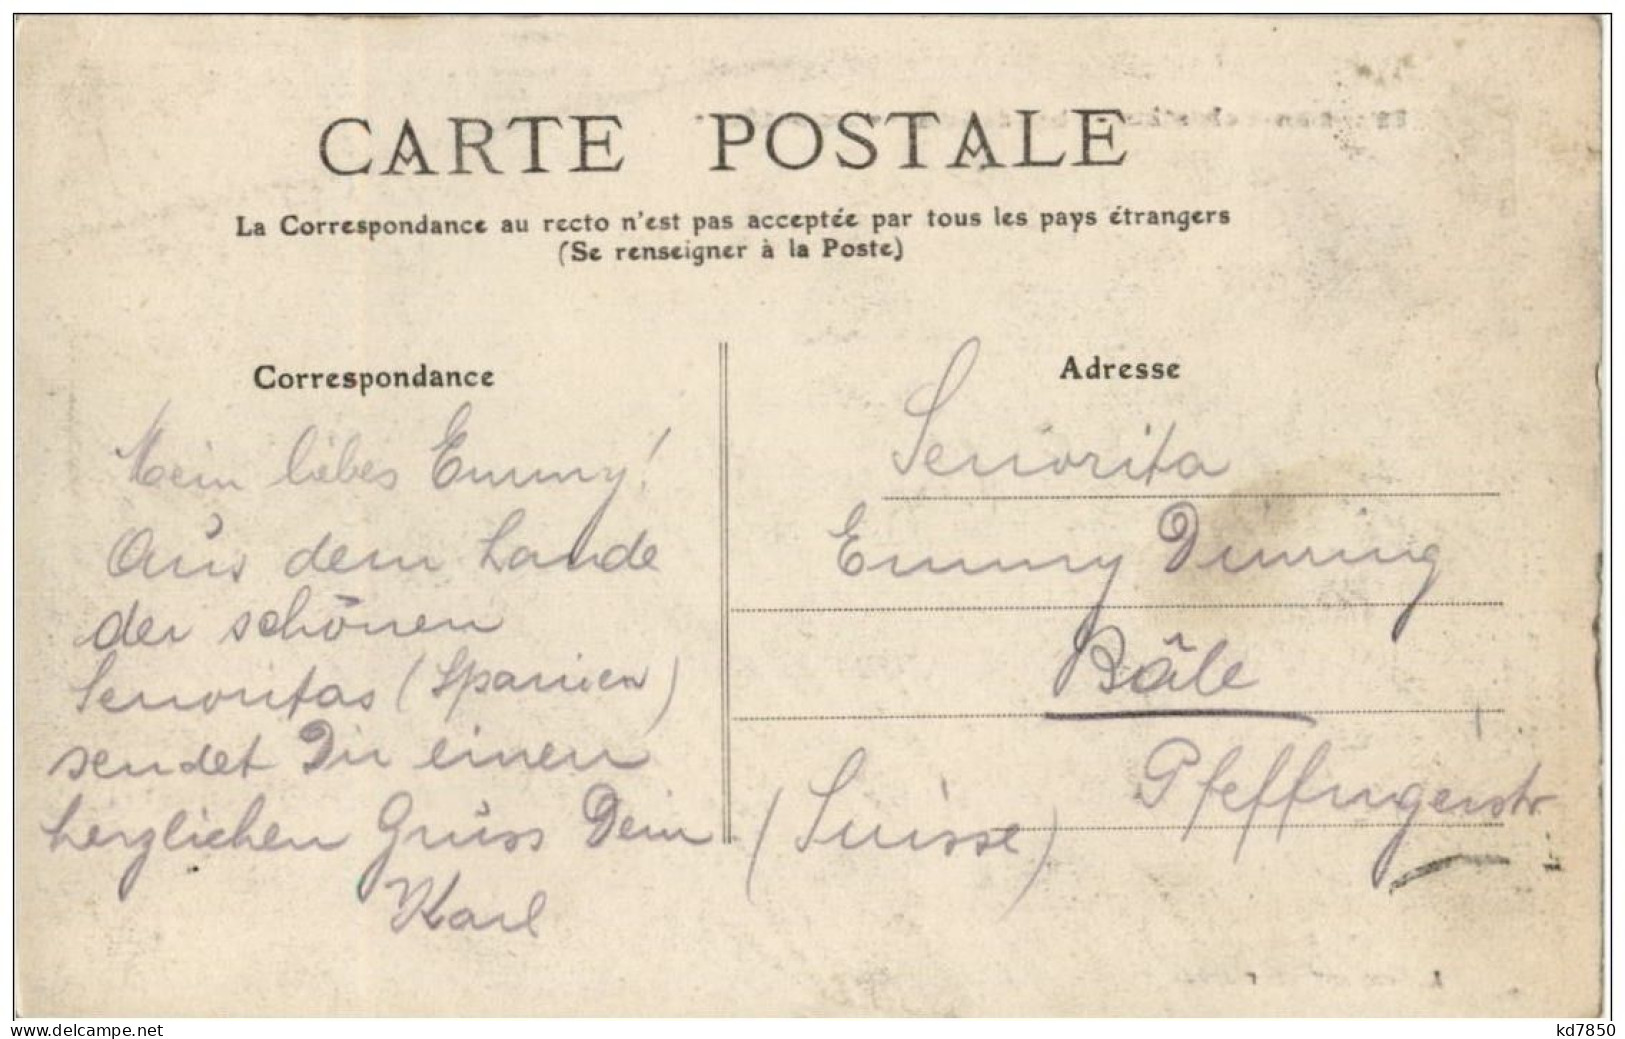 CARTE POSTALE
La Correspondance au recto n'est pas acceptée par tous les pays étrangers
(Se renseigner à la Poste)
Correspondance
Mein liebes Emmy!
Aus dem Lande
der schönen
Senoritas (Spanien)
sendet Dir einen
herzlichen Grüss Dein
Karl
Adresse
Senorita
Emmy
Bâle
Pfeffingerstr
(Suisse)
delcampe.net
kd7850